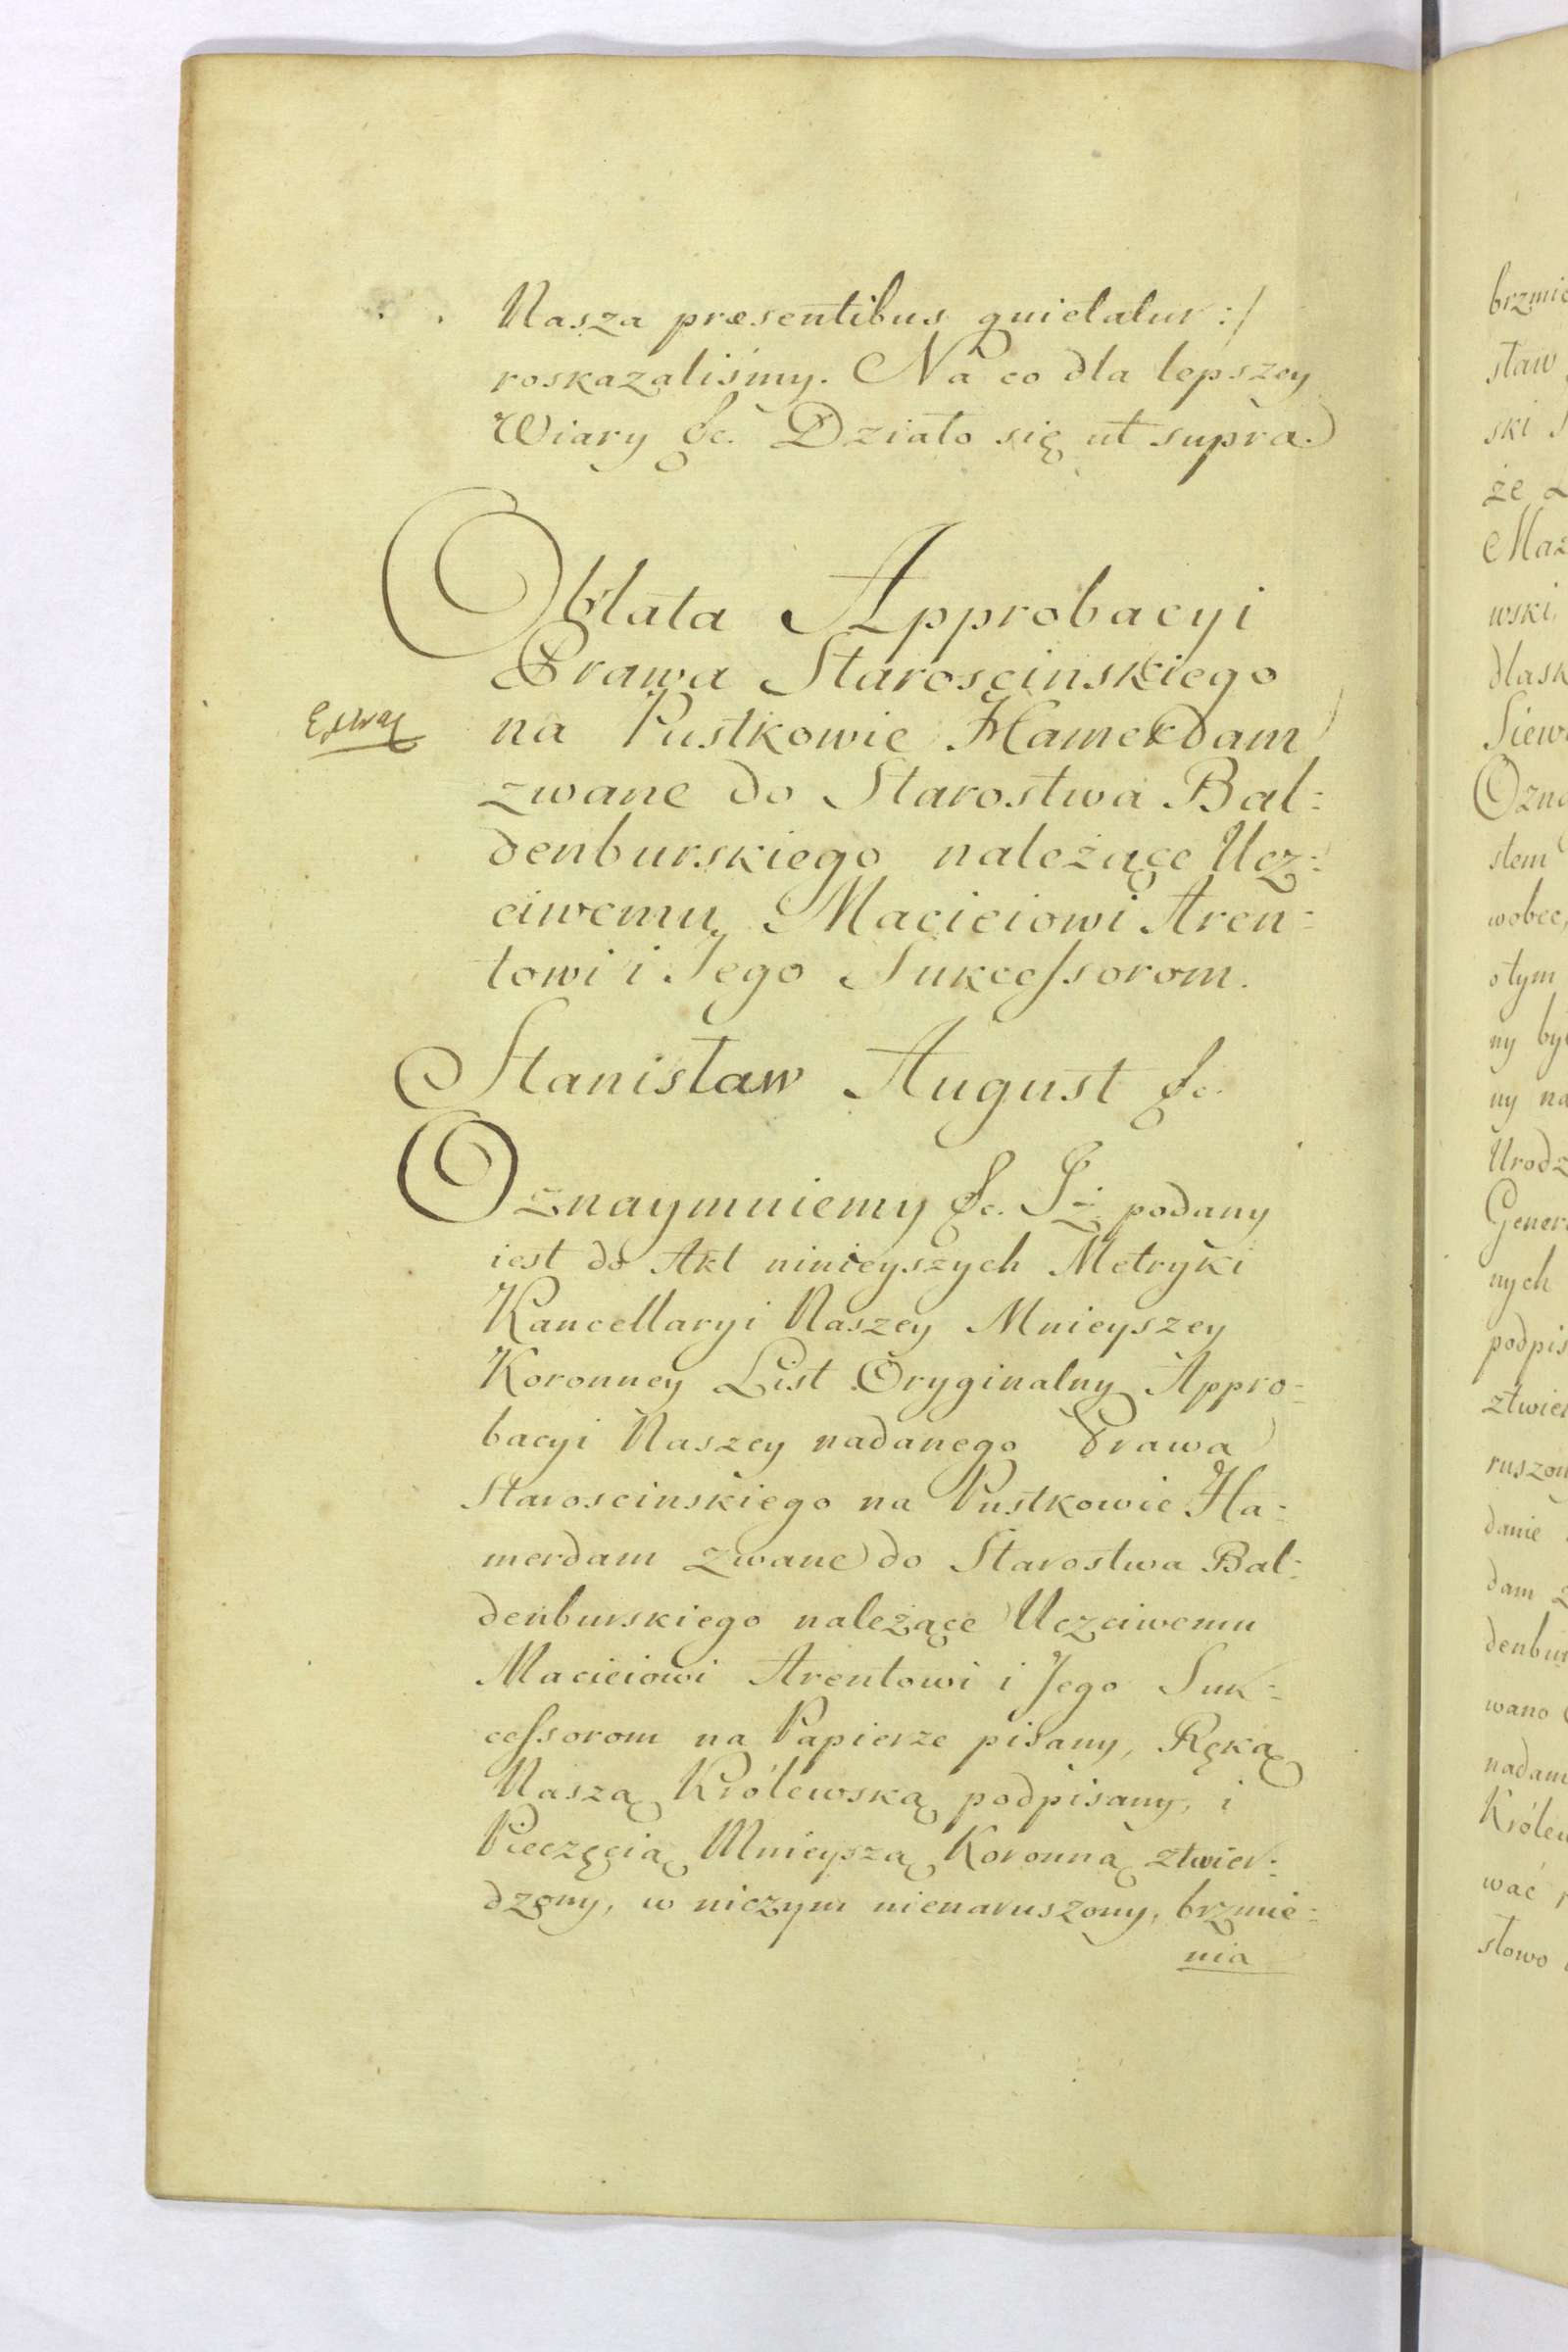 Nasza præsentibus quietatur :/
roskazaliśmy. Na co dla lepszey
Wiary &c. Działo się ut supra.
Oblata Approbacyi
Prawa Staroscinskiego
na Pustkowie Hamerdam
zwane do Starostwa Bal:
denburskiego należące Ucz:
ciwemu Macieiowi Aren:
towi i Jego Sukcessorom.
Stanisław August &c.
Oznaymuiemy &c. Iż podany
iest do Akt ninieyszych Metryki
Kancellaryi Naszey Mnieyszey
Koronney List Oryginalny Appro:
bacyi Naszey nadanego Prawa
Staroscinskiego na Pustkowie Ha:
merdam zwane do Starostwa Bal:
denburskiego należące Uczciwemu
Macieiowi Arentowi i Jego Suk:
cessorom na Papierze pisany, Ręką
Naszą Królewską podpisany, i
Pieczęcią Mnieyszą Koronną ztwier:
dzony, w niczym nienaruszony, brzmie:
nia
brzmie
staw
ski
że
Maz
wski,
dlask
Siew
Ozna
stem
wobec,
o tym
ny by
ny na
Urodz
Gener
nych
podpis
ztwier
ruszon
danie
dam
denbur
wano
nadam
Królew
wać
słowo